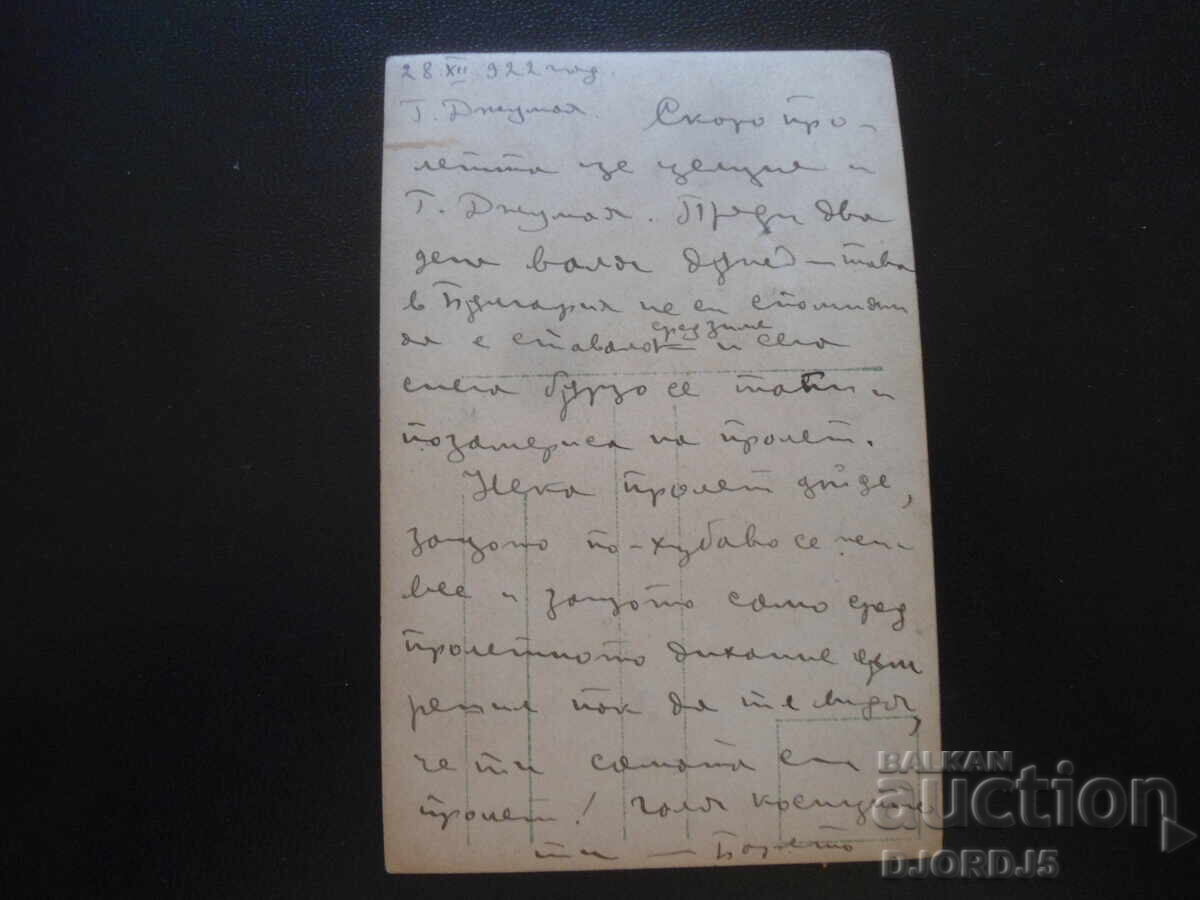 28 XII 922 год.
Г. Джумая. Скоро про-
летта ще целуне и
Г. Джумая. Преди два
дена валя дъжд – това
в България не си спомням
да е ставало сред зима и сега
снега бързо се топи и
позамериса на пролет.
Нека пролет дойде,
защото по-хубаво се жи-
вее и защото само сред
пролетното дихание
реших пак да те видя,
че ти самата си
пролет! галя косиците
ти — Борето
BALKAN
auction
DJORDJ5